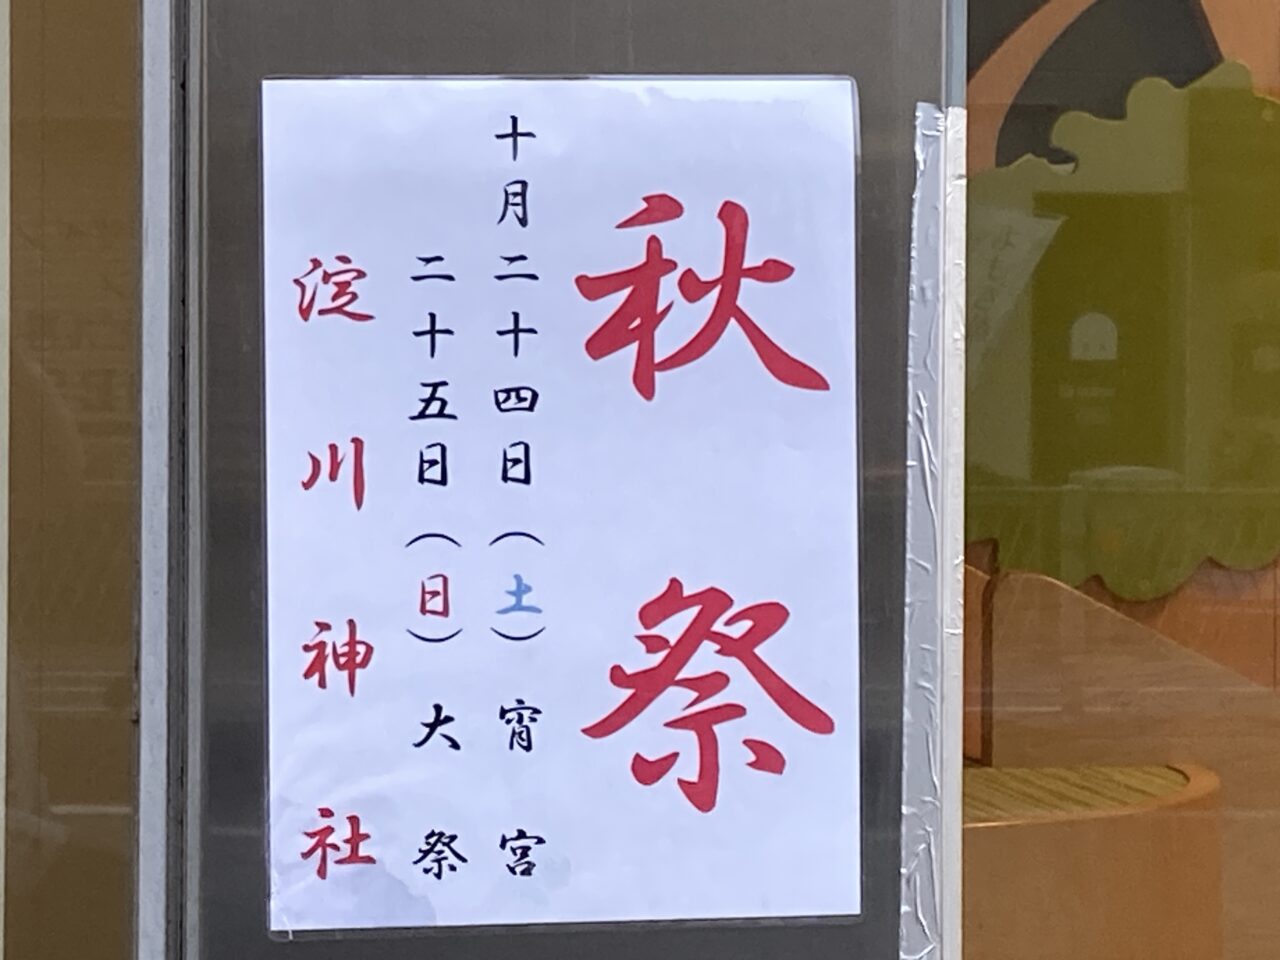 秋祭
十月二十四日（土）宵宮
二十五日（日）大祭
淀川神社